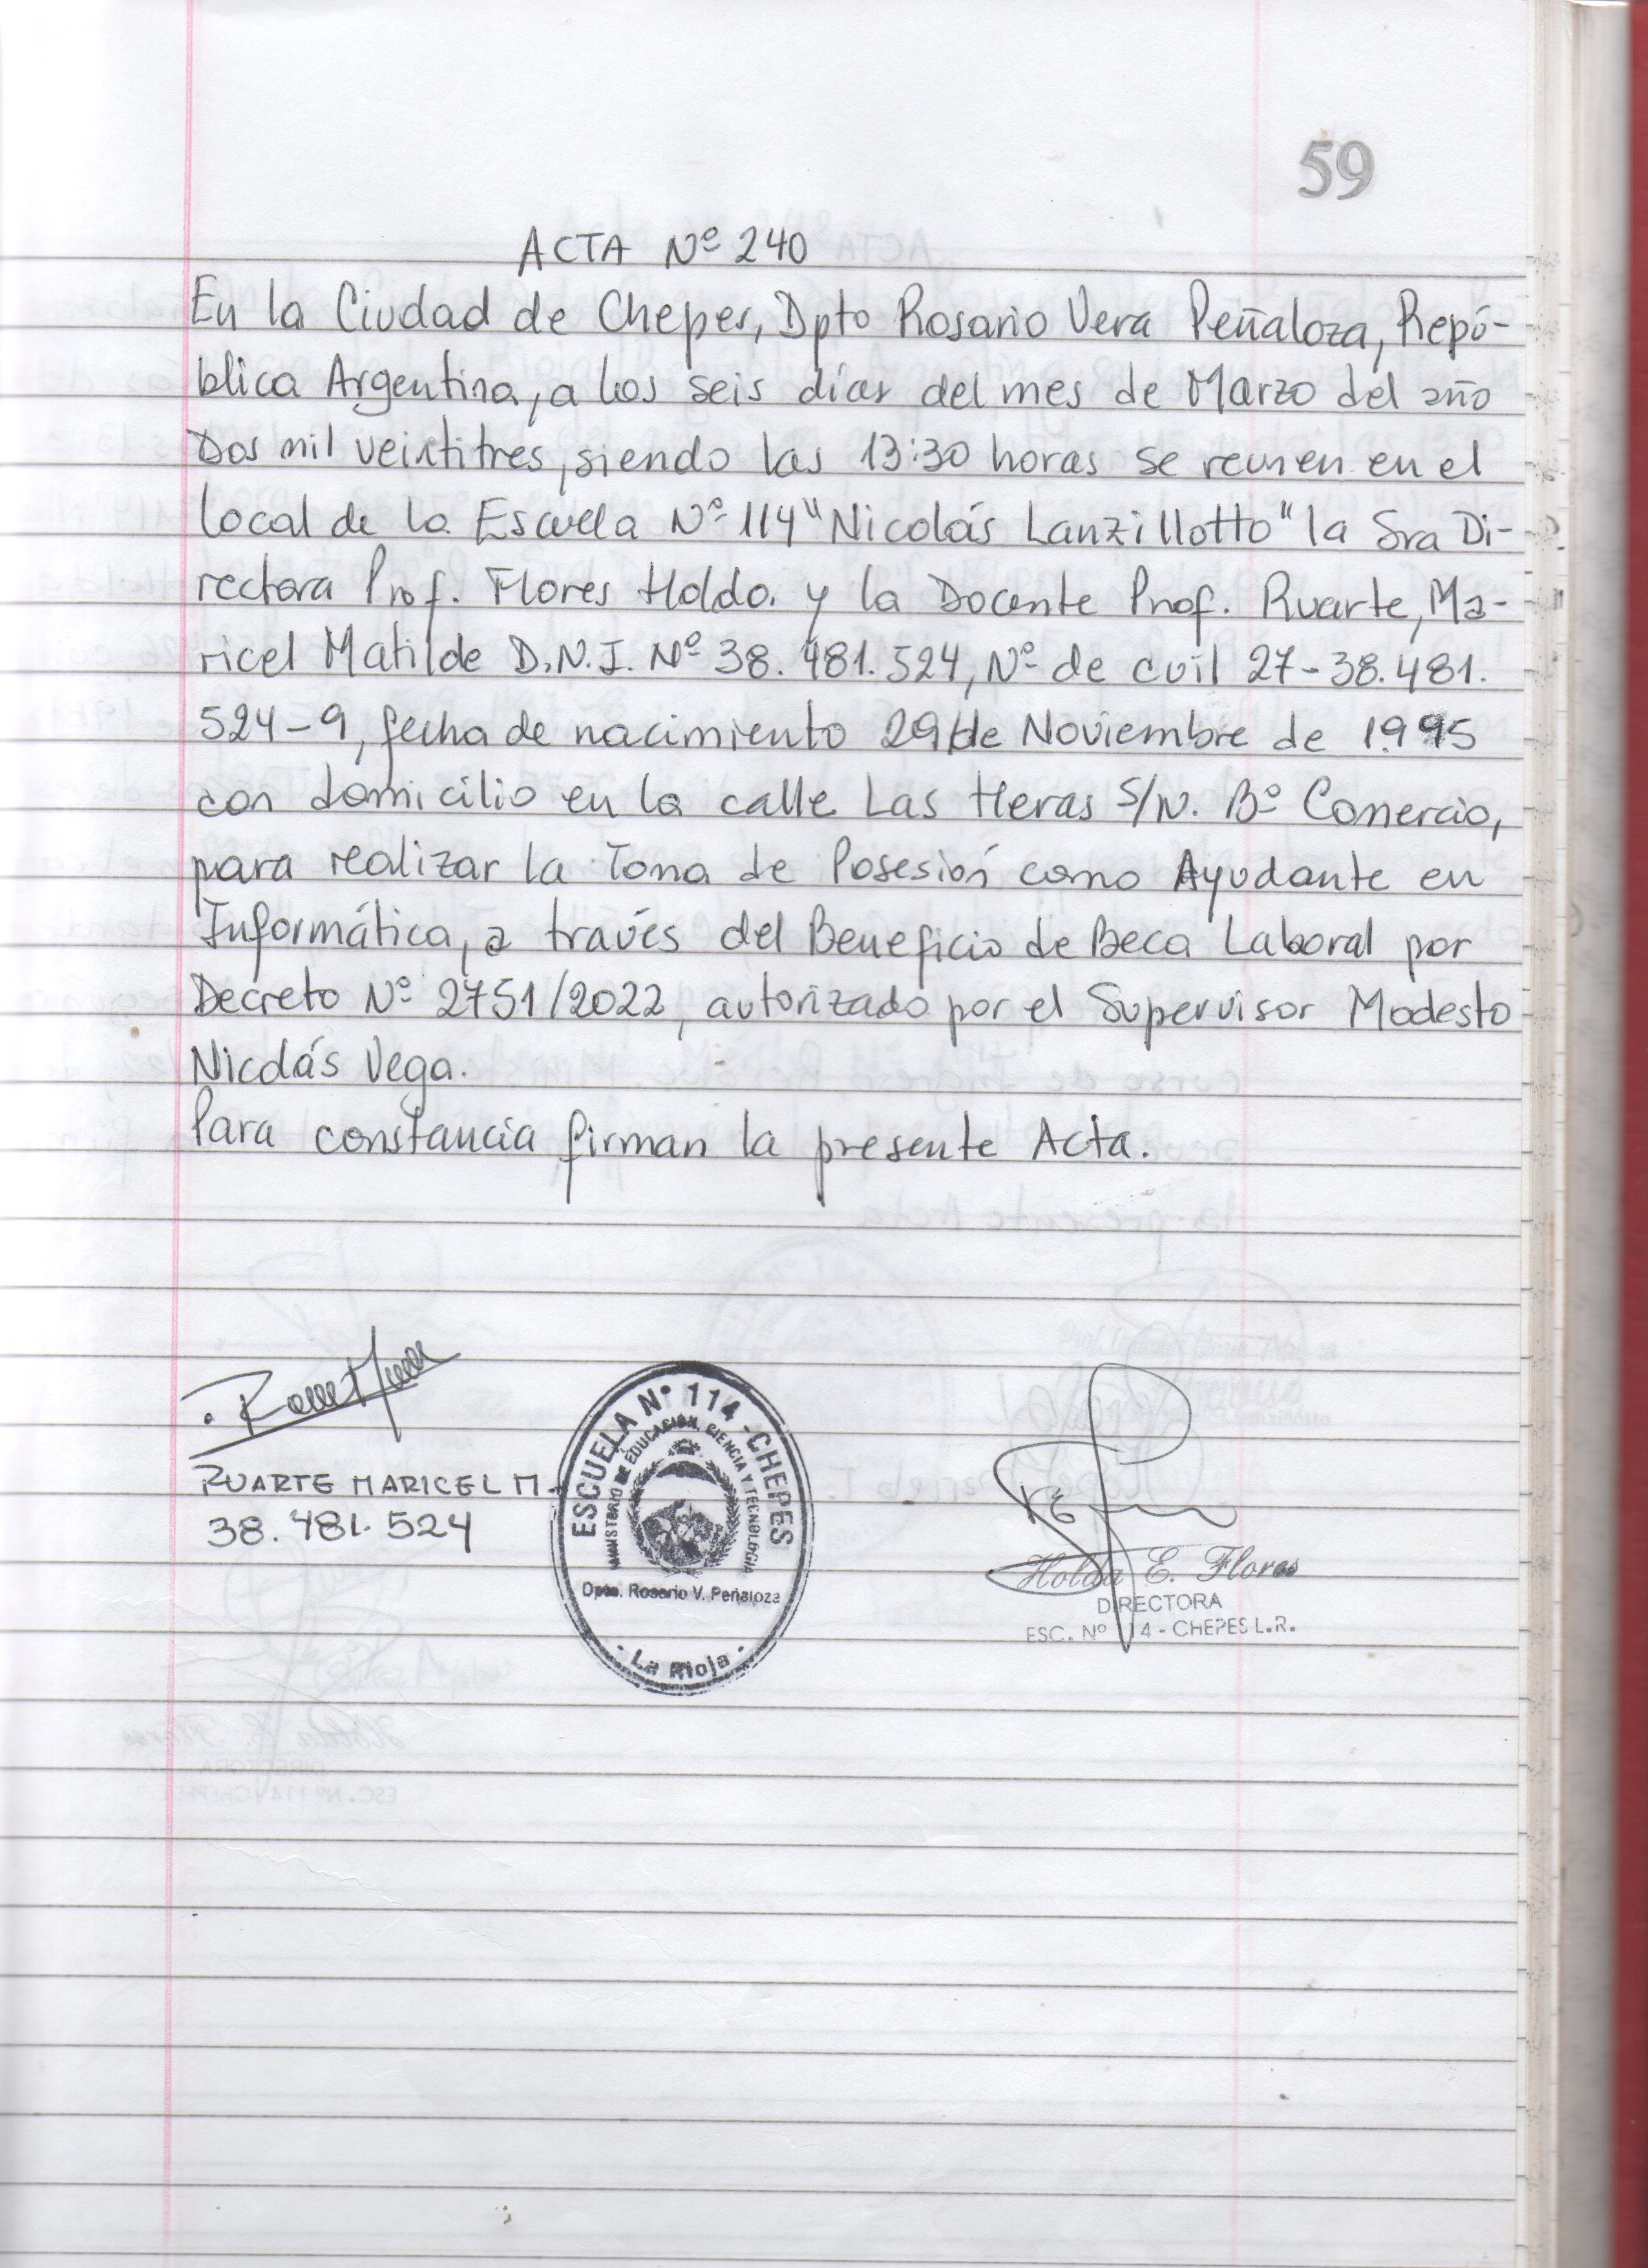 59
ACTA Nº 240
En la Ciudad de Chepes, Dpto Rosario Vera Peñaloza, Repú-
blica Argentina, a los seis días del mes de Marzo del año
Dos mil veintitres, siendo las 13:30 horas se reunen en el
local de la Escuela Nº 114 "Nicolás Lanzillotto" la Sra Di-
rectora Prof. Flores Holda. y la Docente Prof. Ruarte, Ma-
ricel Matilde D.N.I. Nº 38.481.524, Nº de cuil 27-38.481.
524-9, fecha de nacimiento 29 de Noviembre de 1995
con domicilio en la calle Las Heras S/N. Bº Comercio,
para realizar la Toma de Posesión como Ayudante en
Informática, a través del Beneficio de Beca Laboral por
Decreto Nº 2751/2022, autorizado por el Supervisor Modesto
Nicolás Vega.
Para constancia firman la presente Acta.
RUARTE MARICEL M.
38.481.524
ESCUELA Nº 114 - CHEPES
MINISTERIO DE EDUCACIÓN, CIENCIA Y TECNOLOGIA
Dpto. Rosario V. Peñaloza
- La Rioja -
Holda E. Flores
DIRECTORA
ESC. Nº 114 - CHEPES L.R.